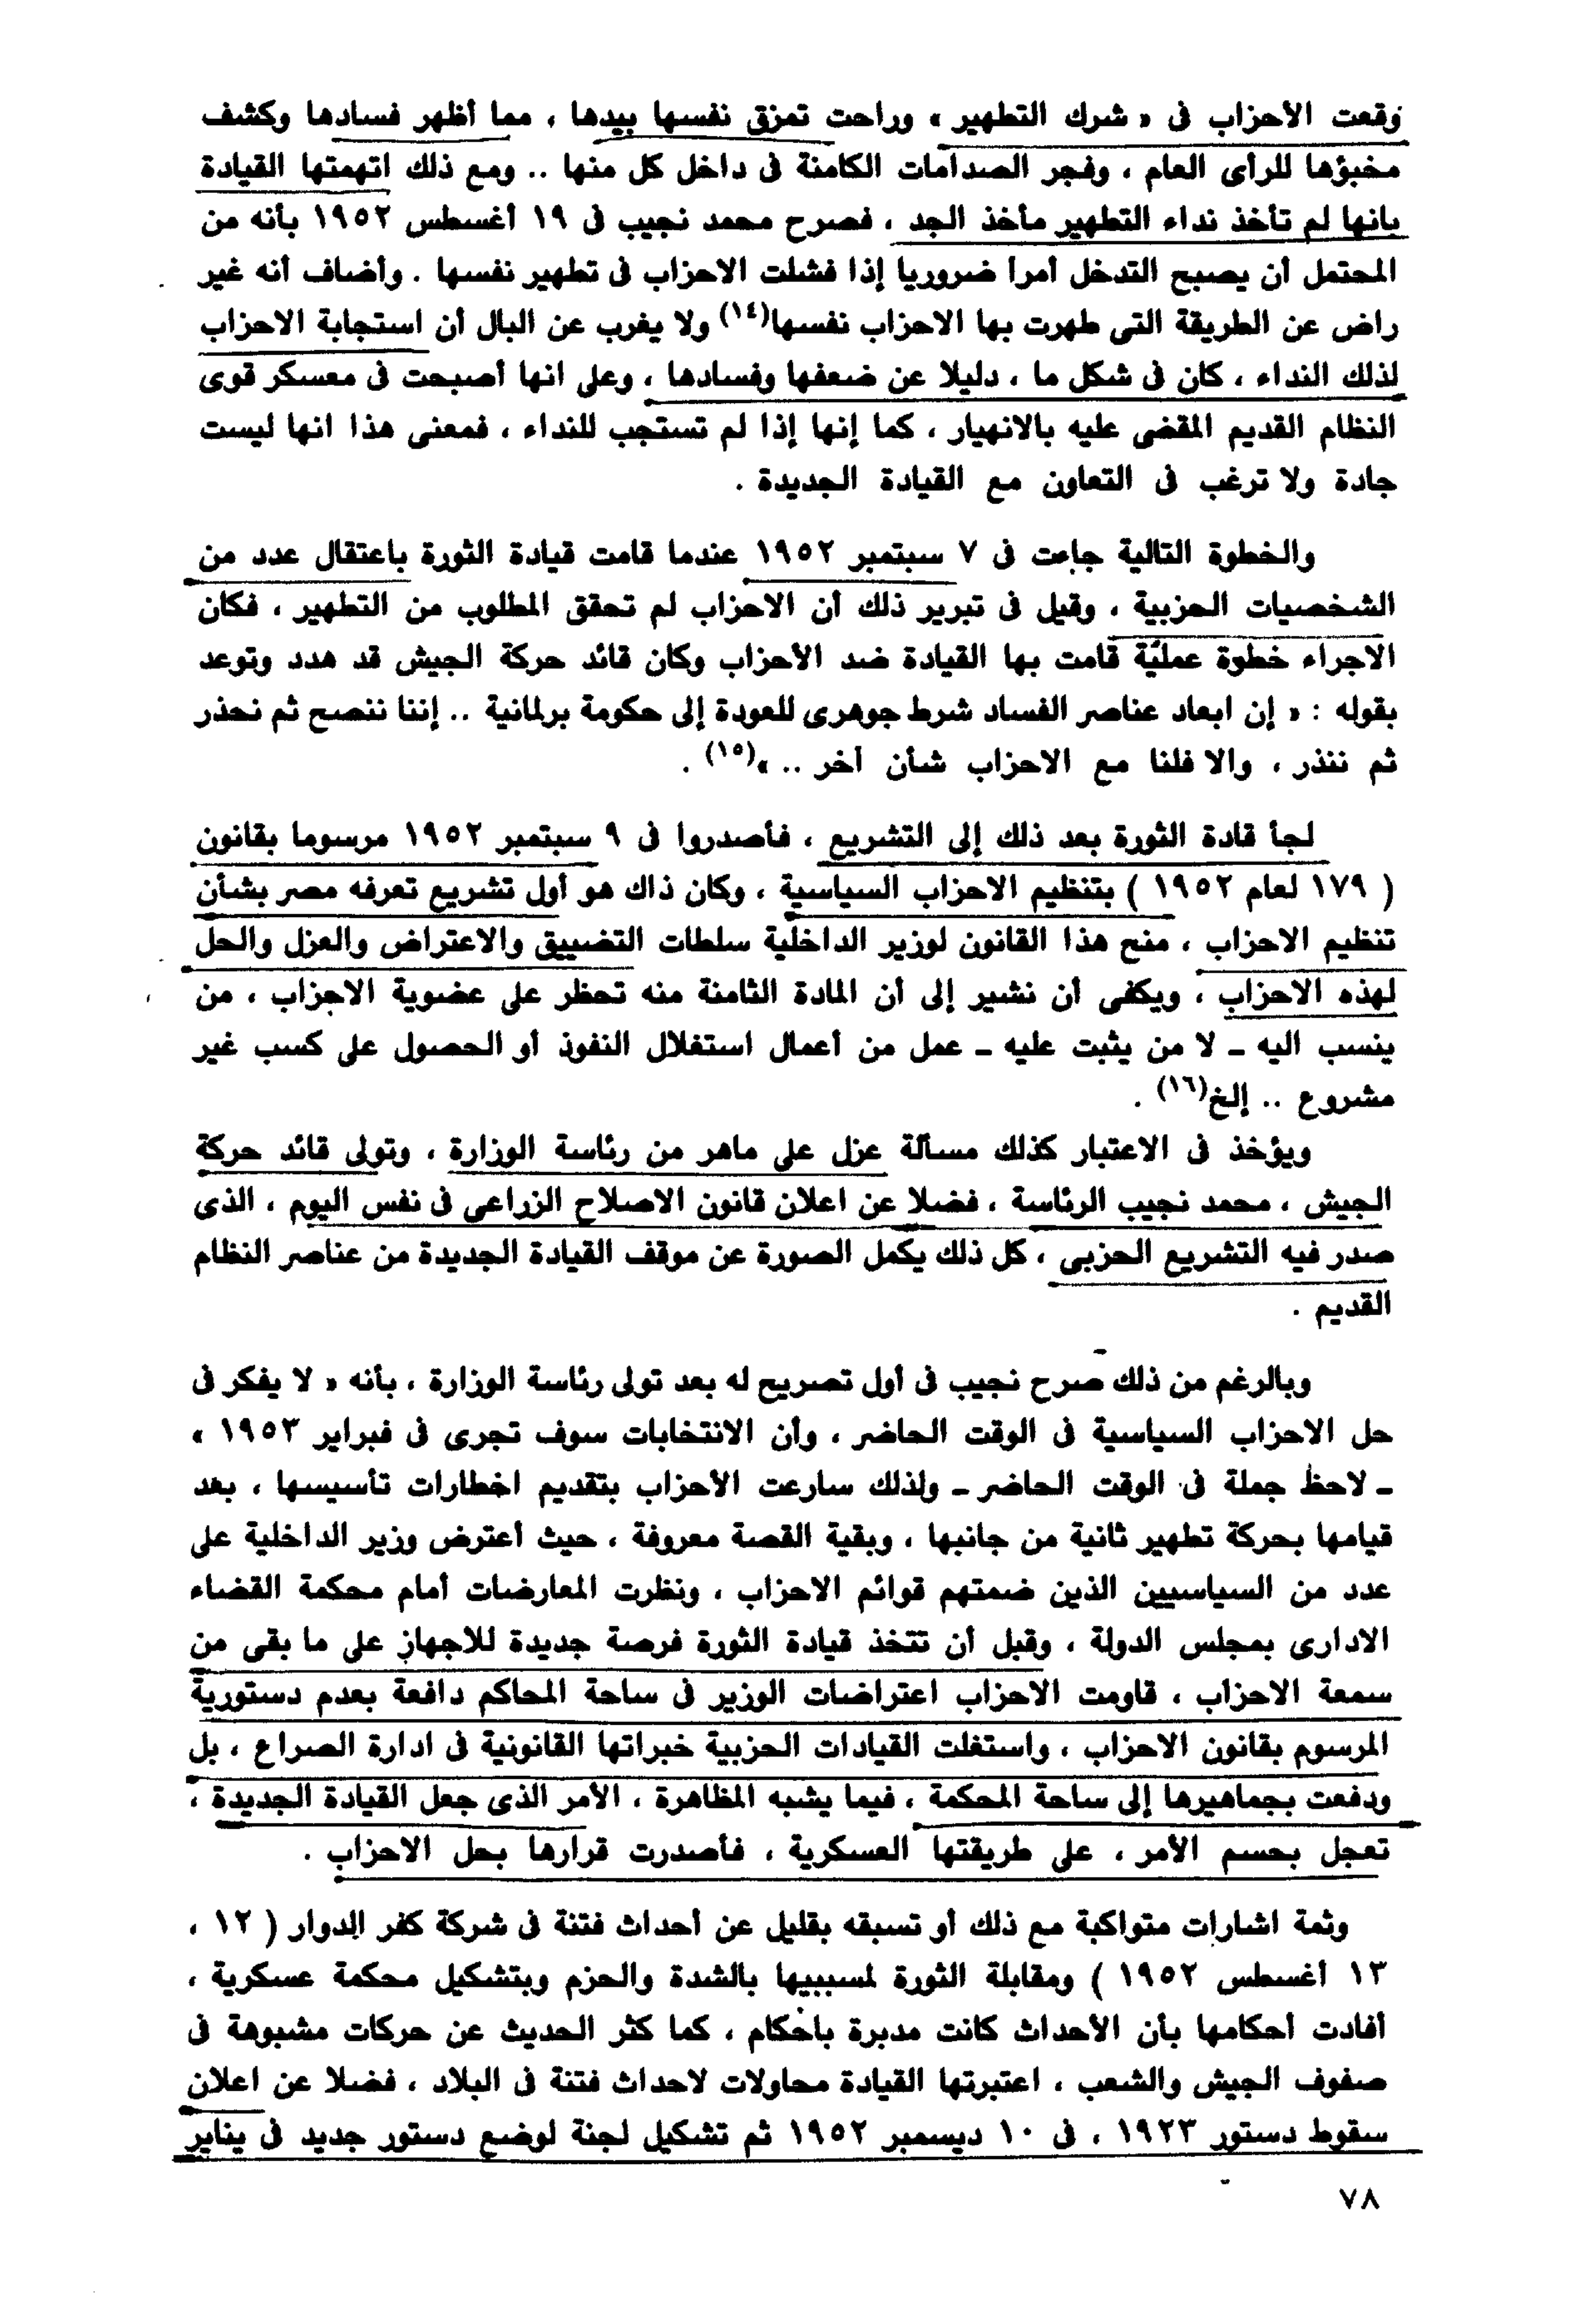 وقعت الأحزاب فى « شرك التطهير » وراحت تمزق نفسها بيدها ، مما أظهر فسادها وكشف
مخبؤها للرأى العام ، وفجر الصدامات الكامنة فى داخل كل منها .. ومع ذلك اتهمتها القيادة
بانها لم تأخذ نداء التطهير مأخذ الجد ، فصرح محمد نجيب فى ١٩ أغسطس ١٩٥٢ بأنه من
المحتمل أن يصبح التدخل أمرأ ضروريا إذا فشلت الاحزاب فى تطهير نفسها . وأضاف أنه غير
راض عن الطريقة التى طهرت بها الاحزاب نفسها(١٤) ولا يغرب عن البال أن استجابة الاحزاب
لذلك النداء ، كان فى شكل ما ، دليلا عن ضعفها وفسادها ، وعلى انها أصبحت فى معسكر قوى
النظام القديم المقضى عليه بالانهيار ، كما إنها إذا لم تستجب للنداء ، فمعنى هذا انها ليست
جادة ولا ترغب فى التعاون مع القيادة الجديدة .
والخطوة التالية جاءت فى ٧ سبتمبر ١٩٥٢ عندما قامت قيادة الثورة باعتقال عدد من
الشخصيات الحزبية ، وقيل فى تبرير ذلك أن الاحزاب لم تحقق المطلوب من التطهير ، فكان
الاجراء خطوة عمليّة قامت بها القيادة ضد الأحزاب وكان قائد حركة الجيش قد هدد وتوعد
بقوله : « إن ابعاد عناصر الفساد شرط جوهرى للعودة إلى حكومة برلمانية .. إننا ننصح ثم نحذر
ثم ننذر ، والا فلنا مع الاحزاب شأن أخر .. »(١٥) .
لجأ قادة الثورة بعد ذلك إلى التشريع ، فأصدروا فى ٩ سبتمبر ١٩٥٢ مرسوما بقانون
( ١٧٩ لعام ١٩٥٢ ) بتنظيم الاحزاب السياسية ، وكان ذاك هو أول تشريع تعرفه مصر بشأن
تنظيم الاحزاب ، منح هذا القانون لوزير الداخلية سلطات التضييق والاعتراض والعزل والحل
لهذه الاحزاب ، ويكفى أن نشير إلى أن المادة الثامنة منه تحظر على عضوية الاحزاب ، من
ينسب اليه ـ لا من يثبت عليه ـ عمل من أعمال استغلال النفوذ أو الحصول على كسب غير
مشروع .. إلخ(١٦) .
ويؤخذ فى الاعتبار كذلك مسألة عزل على ماهر من رئاسة الوزارة ، وتولى قائد حركة
الجيش ، محمد نجيب الرئاسة ، فضلا عن اعلان قانون الاصلاح الزراعى فى نفس اليوم ، الذى
صدر فيه التشريع الحزبى ، كل ذلك يكمل الصورة عن موقف القيادة الجديدة من عناصر النظام
القديم .
وبالرغم من ذلك صرح نجيب فى أول تصريح له بعد تولى رئاسة الوزارة ، بأنه « لا يفكر فى
حل الاحزاب السياسية فى الوقت الحاضر ، وأن الانتخابات سوف تجرى فى فبراير ١٩٥٣ »
ـ لاحظ جملة فى الوقت الحاضر ـ ولذلك سارعت الأحزاب بتقديم اخطارات تأسيسها ، بعد
قيامها بحركة تطهير ثانية من جانبها ، وبقية القصة معروفة ، حيث أعترض وزير الداخلية على
عدد من السياسيين الذين ضمتهم قوائم الاحزاب ، ونظرت المعارضات أمام محكمة القضاء
الادارى بمجلس الدولة ، وقبل أن تتخذ قيادة الثورة فرصة جديدة للاجهاز على ما بقى من
سمعة الاحزاب ، قاومت الاحزاب اعتراضات الوزير فى ساحة المحاكم دافعة بعدم دستورية
المرسوم بقانون الاحزاب ، واستغلت القيادات الحزبية خبراتها القانونية فى ادارة الصراع ، بل
ودفعت بجماهيرها إلى ساحة المحكمة ، فيما يشبه المظاهرة ، الأمر الذى جعل القيادة الجديدة ،
تعجل بحسم الأمر ، على طريقتها العسكرية ، فأصدرت قرارها بحل الاحزاب .
وثمة اشارات متواكبة مع ذلك أو تسبقه بقليل عن أحداث فتنة فى شركة كفر الدوار ( ١٢ ،
١٣ أغسطس ١٩٥٢ ) ومقابلة الثورة لمسببيها بالشدة والحزم وبتشكيل محكمة عسكرية ،
أفادت أحكامها بأن الأحداث كانت مدبرة باحكام ، كما كثر الحديث عن حركات مشبوهة فى
صفوف الجيش والشعب ، اعتبرتها القيادة محاولات لاحداث فتنة فى البلاد ، فضلا عن اعلان
سقوط دستور ١٩٢٣ ، فى ١٠ ديسمبر ١٩٥٢ ثم تشكيل لجنة لوضع دستور جديد فى يناير
٧٨